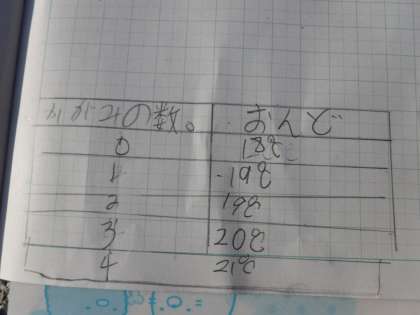 かがみの数。 おんど
0 18℃
1 19℃
2 19℃
3 20℃
4 21℃